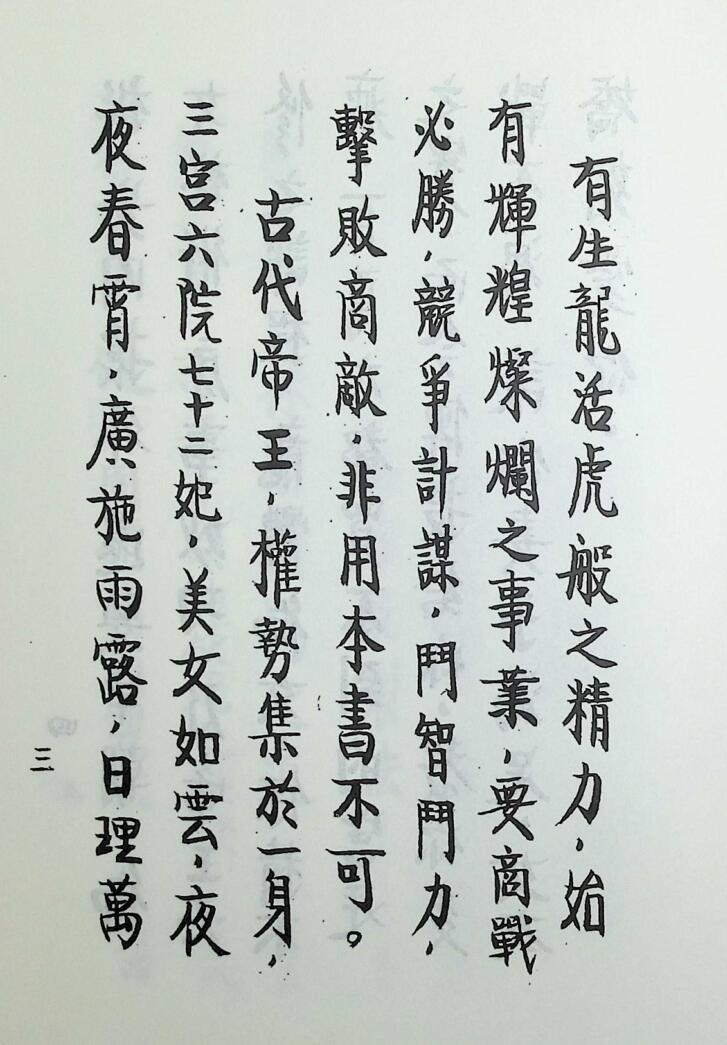 有生龍活虎般之精力，始
有輝煌燦爛之事業，要商戰
必勝，競爭計謀，鬥智鬥力，
擊敗商敵，非用本書不可。
古代帝王，權勢集於一身，
三宮六院七十二妃，美女如雲，夜
夜春宵，廣施雨露，日理萬
三